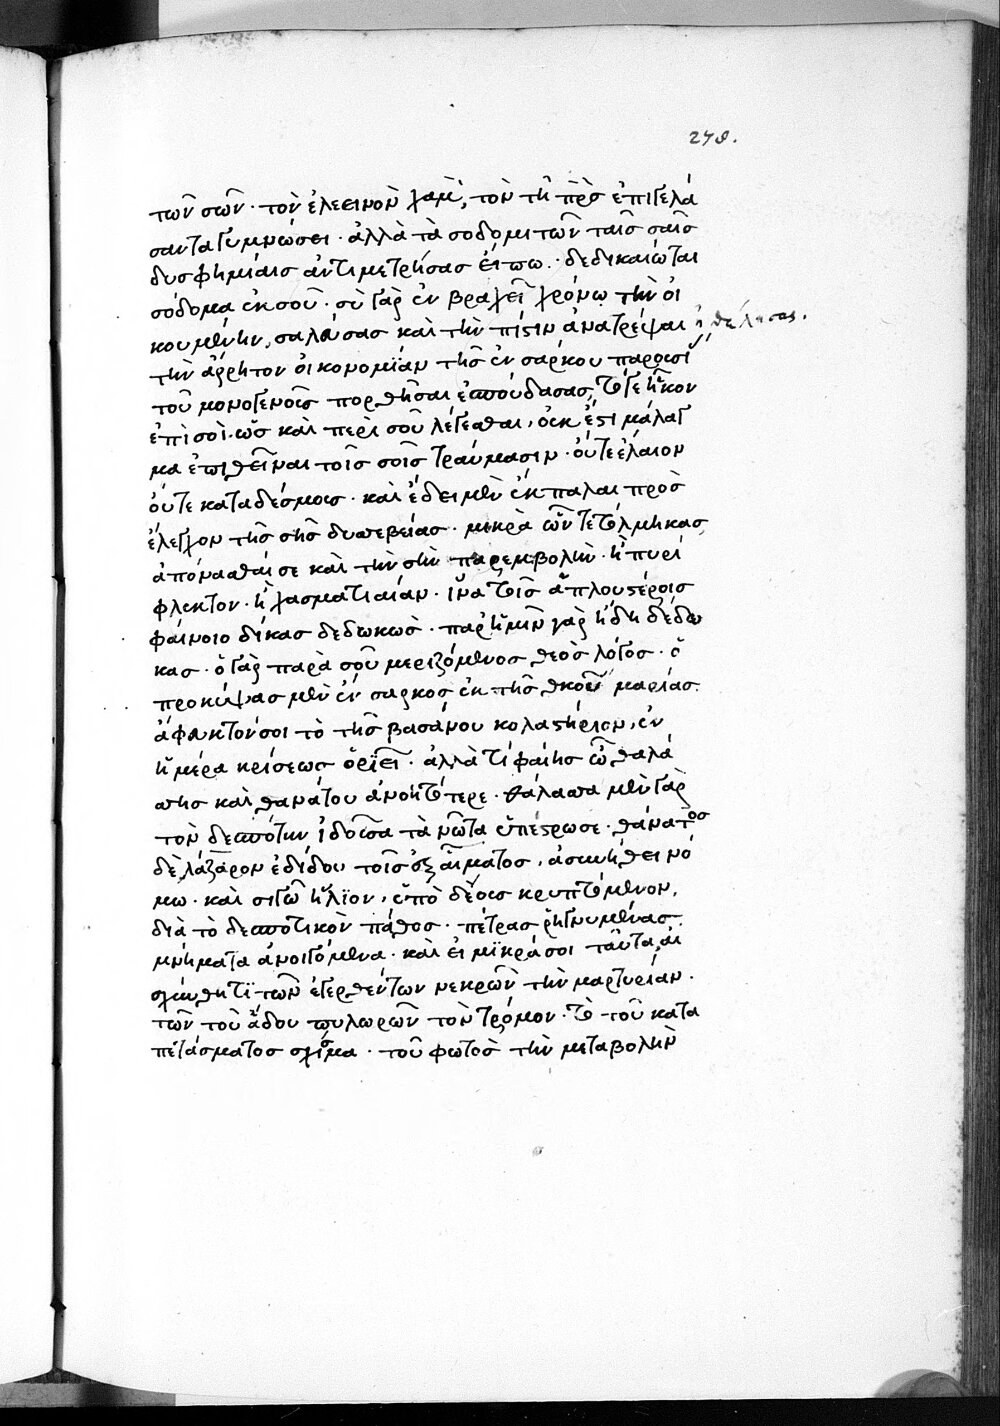 279.
τῶν σῶν· τὸν ἐλεεινὸν χαμ, τὸν τῆ πρς ἐπιγελά
σαντα γυμνώσει· ἀλλὰ τὰ σοδομιτῶν ταῖς σαῖς
δυσφημίαις ἀντιμετρήσας εἴπω· δεδικαίωται
σόδομα ἐκ σοῦ· σὺ γὰρ ἐν βραχεῖ χρόνω τὴν οἰ
κουμένην, σαλεύσας καὶ τὴν πίστιν ἀνατρέψαι ἠθέλησας.
τὴν ἄρρητον οἰκονομίαν τῆς ἐν σάρκου παρουσί
τοῦ μονογενοῦς πορθῆσαι ἐσπούδασας, τό γε ἧκον
ἐπὶ σοὶ· ὡς καὶ περὶ σοῦ λέγεσθαι, οὐκ ἔστι μάλαγ
μα ἐπιθεῖναι τοῖς σοῖς τραύμασιν· οὔτε ἔλαιον
οὔτε καταδέσμους· καὶ ἔδει μὲν ἔκπαλαι πρὸς
ἔλεγχον τῆς σῆς δυσσεβείας· μικρὰ ὧν τετόλμηκας,
ἀπόνασθαί σε καὶ τὴν σὴν παρεμβολὴν· ἢ πυρί
φλεκτον· ἢ χασματιαίαν· ἵνα τοῖς ἁπλουστέροις
φαίνοιο δίκας δεδωκὼς· παρ' ἡμῖν γὰρ ἤδη δέδω
κας· ὁ γὰρ παρὰ σοῦ μεριζόμενος θεὸς λόγος· ὁ
προκύψας μὲν ἐν σαρκὸς ἐκ τῆς θκου μαρίας·
ἄφυκτόν σοι τὸ τῆς βασάνου κολαστήριον, ἐν
ἡμέρα κρίσεως ὁριεῖ· ἀλλὰ τί φαίης ὦ θαλά
σσης καὶ θανάτου ἀνοητότερε· θάλασσα μὲν γὰρ
τὸν δεσπότην ἰδοῦσα τὰ νῶτα ὑπέστρωσε· θάνατος
δὲ λάζαρον ἐδίδου τοῖς ἐξ αἵματος, ἀσυνήθει νό
μω· καὶ σιγῶ ἥλιον, ὑπὸ δέους κρυπτόμενον,
διὰ τὸ δεσποτικὸν πάθος· πέτρας ῥηγνυμένας·
μνήματα ἀνοιγόμενα· καὶ εἰ μικρά σοι ταῦτα, αἰ
σχύνθητι τῶν ἐγερθέντων νεκρῶν τὴν μαρτυρίαν·
τῶν τοῦ ἅδου πυλωρῶν τὸν τρόμον· τὸ τοῦ κατα
πετάσματος σχίσμα· τοῦ φωτὸς τὴν μεταβολὴν